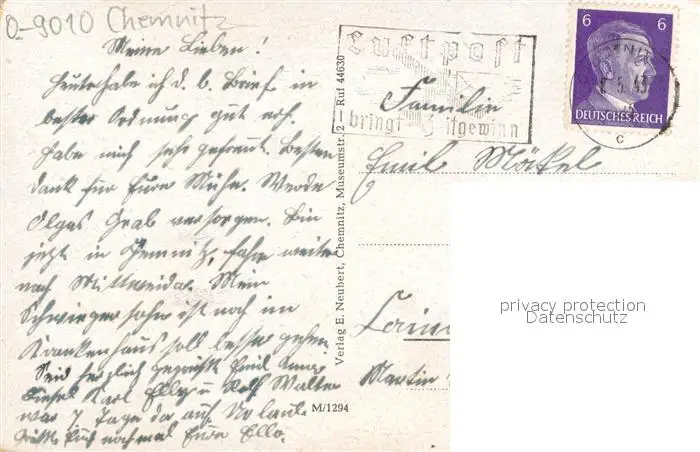 O-9010 Chemnitz
Meine Lieben!
Heute habe ich d. b. Brief in
bester Ordnung gut erh.
Habe mich sehr gefreut. Besten
Dank für Eure Mühe. Werde
Olgas Grab versorgen. Bin
jetzt in Chemnitz, fahre weiter
nach Mittweida. Mein
Schwiegersohn ist noch im
Krankenhaus soll besser gehen.
Seid herzlich gegrüßt Emil
Liesel Karl Elly u Rolf Walter
war 7 Tage da auf Urlaub.
Grüße Euch nochmal Eure Ella.
Verlag E. Neubert, Chemnitz, Museumstr. 2 — Ruf 44630
M/1294
Luftpost
bringt Zeitgewinn
6 6
DEUTSCHES REICH
5. 43
c
Familie
Emil Möckel
Martin
privacy protection
Datenschutz